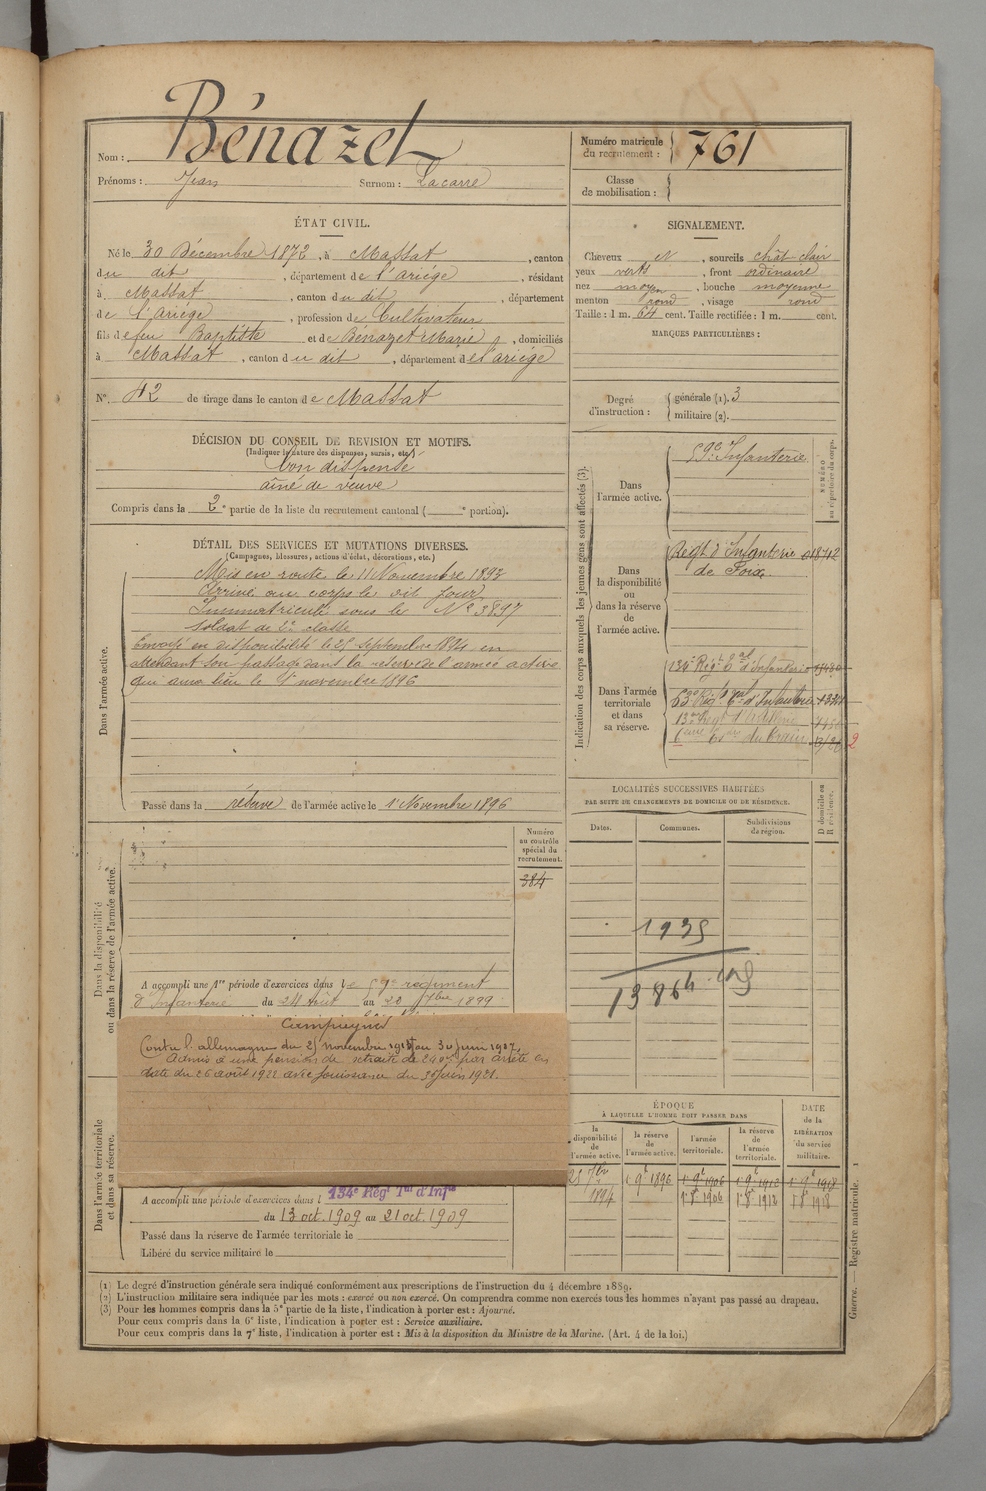 Nom : Bénazet
Prénoms : Jean Surnom : Lacarre
Numéro matricule du recrutement : 761
Classe de mobilisation :
ÉTAT CIVIL.
Né le 30 Décembre 1872, à Massat, canton
du dit, département de l'Ariége, résidant
à Massat, canton du dit, département
de l'Ariége, profession de Cultivateur
fils de feu Baptiste et de Bénazet Marie, domiciliés
à Massat, canton du dit, département de l'ariége
N° 42 de tirage dans le canton de Massat
SIGNALEMENT.
Cheveux N, sourcils chât clair
yeux verts, front ordinaire
nez moyen, bouche moyenne
menton rond, visage rond
Taille : 1 m. 64 cent. Taille rectifiée : 1 m. cent.
MARQUES PARTICULIÈRES :
Degré d'instruction : générale (1). 3
militaire (2).
DÉCISION DU CONSEIL DE REVISION ET MOTIFS.
(Indiquer la nature des dispenses, sursis, etc.)
bon dispensé
aîné de veuve
Compris dans la 2e partie de la liste du recrutement cantonal ( e portion).
DÉTAIL DES SERVICES ET MUTATIONS DIVERSES.
(Campagnes, blessures, actions d'éclat, décorations, etc.)
Dans l'armée active.
Mis en route le 11 Novembre 1893
Arrivé au corps le dit jour
Immatriculé sous le N° 3897
soldat de 2e classe
Envoyé en disponibilité le 25 septembre 1894 en
attendant son passage dans la réserve de l'armée active
qui aura lieu le 1er novembre 1896
Passé dans la réserve de l'armée active le 1er Novembre 1896
Indication des corps auxquels les jeunes gens sont affectés (3).
NUMÉRO au répertoire du corps.
Dans l'armée active.
59e Infanterie
Dans la disponibilité ou dans la réserve de l'armée active.
Regt d'Infanterie
de Foix
Dans l'armée territoriale et dans sa réserve.
134e Régt tal d'Infanterie
63e Régt tal d'Infanterie
LOCALITÉS SUCCESSIVES HABITÉES
PAR SUITE DE CHANGEMENTS DE DOMICILE OU DE RÉSIDENCE.
Dates. Communes. Subdivisions de région. D domicile ou R résidence.
1935
Numéro au contrôle spécial du recrutement.
384
Dans la disponibilité ou dans la réserve de l'armée active.
A accompli une 1re période d'exercices dans le 59e régiment
d'Infanterie du 24 Août au 20 7bre 1899
Campagnes
Contre l'allemagne du 25 novembre 1915 au 30 juin 1917.
Admis à une pension de retraite de par arrêté en
date du 26 août 1922 avec jouissance du 30 juin 1921.
Dans l'armée territoriale et dans sa réserve.
A accompli une période d'exercices dans l 134e Régt Tal d'Infie
du 13 oct. 1909 au 21 oct. 1909
Passé dans la réserve de l'armée territoriale le
Libéré du service militaire le
ÉPOQUE
À LAQUELLE L'HOMME DOIT PASSER DANS
DATE de la LIBÉRATION du service militaire.
la disponibilité de l'armée active. la réserve de l'armée active. l'armée territoriale. la réserve de l'armée territoriale.
25 7bre 1894 1er 9bre 1896 1er 9bre 1906 1er 9bre 1912 1er 9bre 1918
1er 8bre 1906 1er 8bre 1912 1er 8bre 1918
(1) Le degré d'instruction générale sera indiqué conformément aux prescriptions de l'instruction du 4 décembre 1889.
(2) L'instruction militaire sera indiquée par les mots : exercé ou non exercé. On comprendra comme non exercés tous les hommes n'ayant pas passé au drapeau.
(3) Pour les hommes compris dans la 5e partie de la liste, l'indication à porter est : Ajourné.
Pour ceux compris dans la 6e liste, l'indication à porter est : Service auxiliaire.
Pour ceux compris dans la 7e liste, l'indication à porter est : Mis à la disposition du Ministre de la Marine. (Art. 4 de la loi.)
Guerre. — Registre matricule. 1